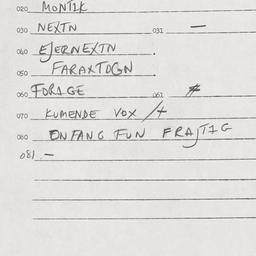 020 MONTIK
030 NEXTN 031 —
040 EJERNEXTN .
050 FARAXTOGN .
060 FORIGE 061 *
070 KUMENDE VOX /+
080 ONFANG FUN FRAJTIG
081 —